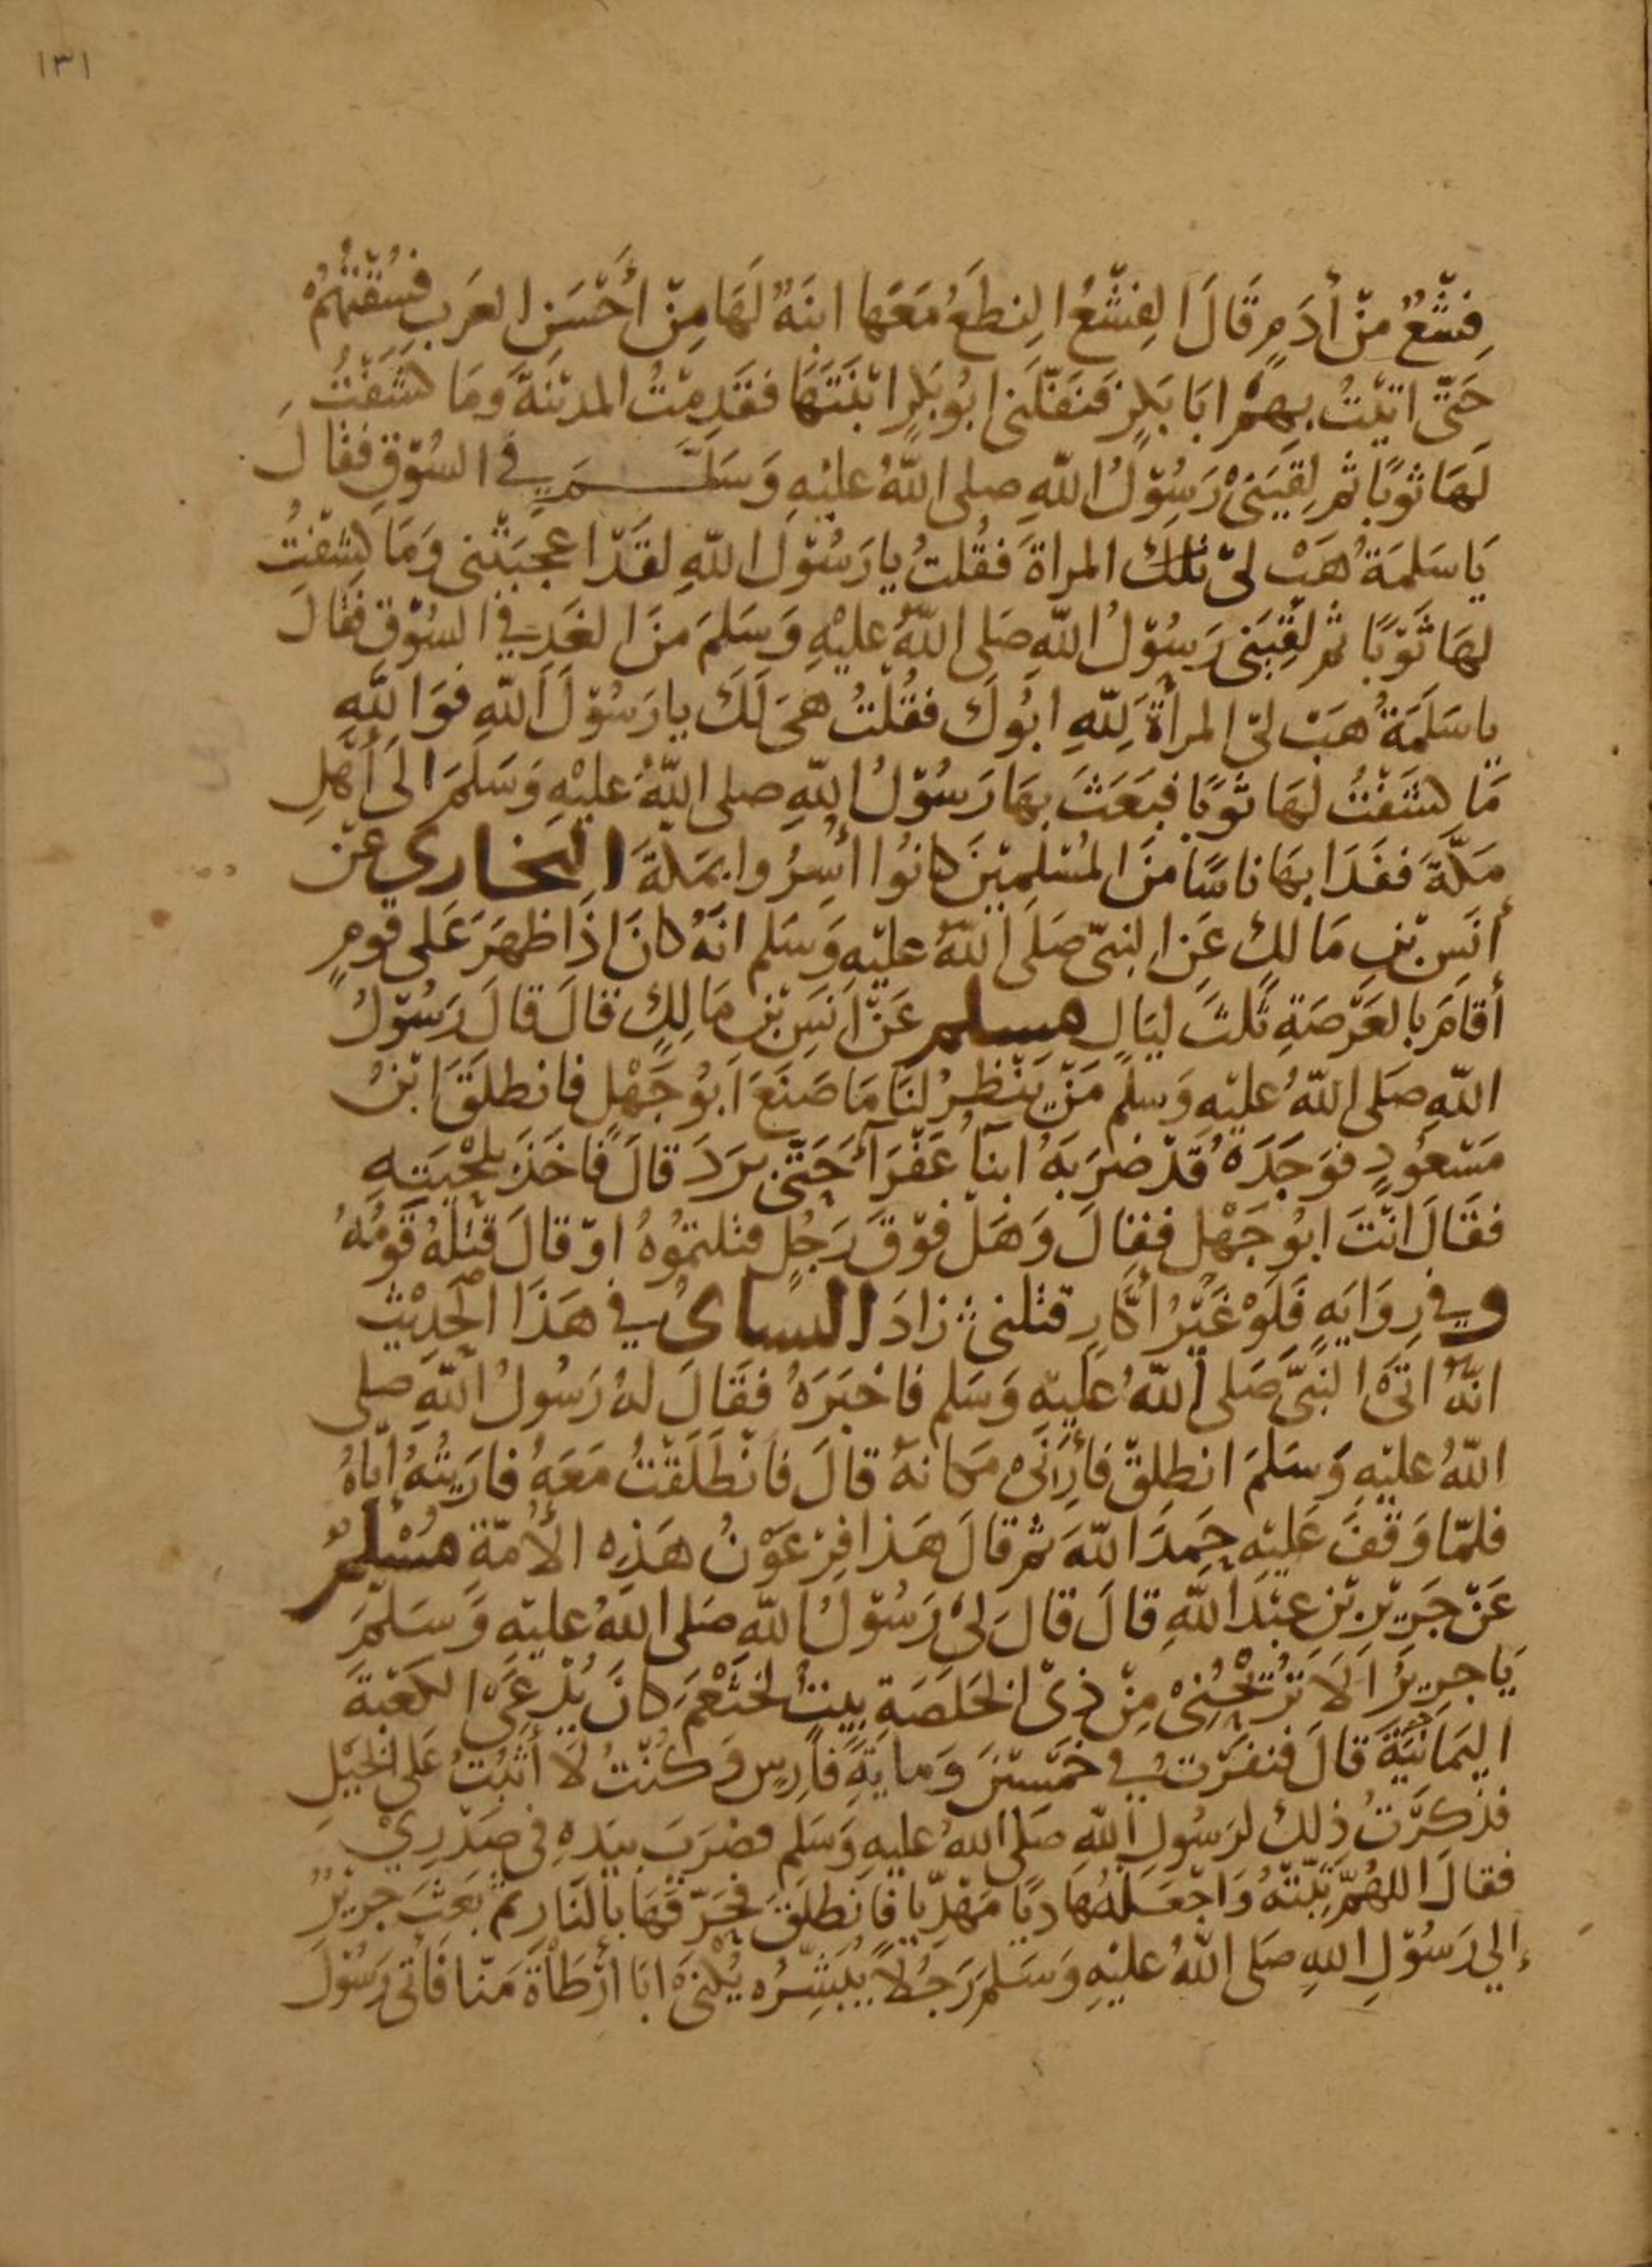 ١٣١
قِشْعٌ مِّنْ أَدَمٍ قَالَ القِشْعُ النِطَعُ مَعَهَا ابنَةٌ لَهَا مِنْ أَحْسَنِ العَرَبِ فَسُقْتُهُمْ
حَتّى اتَيْتُ بِهِمُ ابَا بَكرٍ فَنَفَّلَنِى ابُو بَكرٍ ابْنَتَهَا فَقَدِمْتُ المدِيْنَةَ وَمَا كشَفْتُ
لَهَا ثوبًا ثم لَقِيَنِىْ رَسُوْلُ اللّهِ صلى اللّهُ عليْهِ وَسَلَّمَ فى السُوْقِ فقَالَ
يَا سَلَمَةُ هَبْ لىْ تلكَ المراةَ فقُلتُ يا رَسُوْلَ اللّهِ لقَدْ اعجبَتْنى وَمَا كشَفْتُ
لهَا ثَوْبًا ثم لَقِيَنِى رَسُوْلُ اللّهِ صَلى اللّهُ عليْهِ وَسَلمَ منَ الغَدِ فى السُوْقِ فَقَالَ
يا سَلَمَةُ هَبْ لىْ المرأَةَ لِلّهِ ابُوكَ فقُلْتُ هىَ لَكَ يا رَسُوْلَ اللّهِ فوَاللّهِ
مَا كشَفْتُ لهَا ثوبًا فبَعَثَ بهَا رَسُوْلُ اللّهِ صلى اللّهُ عليْهِ وَسَلمَ الَى أَهْلِ
مَكّةَ ففَدَا بهَا ناسًا منَ المُسْلِمِيْنَ كانُوا أُسِرُوا بمَكةَ البخارى عَنْ
أنَسِ بْنِ مَالكٍ عَنِ النبىّ صَلَى اللّهُ عليْهِ وَسَلم انَهُ كانَ اذَا ظهَرَ عَلى قومٍ
أقامَ بالعَرْصَةِ ثَلثَ ليَالٍ مسلم عَنْ انَسِ بْنِ مَالكٍ قالَ قالَ رَسُوْلُ
اللّهِ صَلى اللّهُ عليْهِ وَسلم مَنْ يَنْظرُ لنَا مَا صَنَعَ ابُو جَهْلٍ فانطلَقَ ابْنُ
مَسْعُودٍ فوَجَدَهُ قدْ ضرَبَهُ ابنَا عَفْرَآءَ حَتّى بَرَدَ قالَ فاخَذَ بلحْيَتهِ
فقَالَ انْتَ ابُو جَهْلٍ فقالَ وَهَلْ فوْقَ رَجُلٍ قتلتمُوْهُ اوْ قالَ قتلَهُ قَوْمُهُ
وفى رِوَايَهٍ فَلَوْ غَيْرُ أكّارٍ قتلنى زادَ النساى فى هَذَا الحَدِيْث
انّهُ اتَى النَبىَّ صَلى اللّهُ عليْهِ وَسَلم فاخْبَرَهُ فقَالَ لهُ رَسُولُ اللّهِ صلى
اللّهُ عليْهِ وَسَلمَ انطلِقْ فأَرِنِىْ مَكانهُ قالَ فانْطَلَقْتُ مَعَهُ فارَيتُهُ ايّاهُ
فلمّا وَقفَ عَليْهِ حَمِدَ اللّهَ ثم قالَ هَذا فِرْعَوْنُ هَذِهِ الأُمّةِ مُسْلِمٌ
عَنْ جَرِيْرِ بْنِ عبْدِ اللّهِ قالَ قالَ لىْ رَسُوْلُ اللّهِ صَلى اللّهُ عليْهِ وَسَلمَ
يَا جرِيرُ الَا تُرِيْحُنِىْ مِنْ ذِى الخَلَصَةِ بيتٌ لخَثْعَمَ كانَ يُدْعَى الكعْبَةَ
اليَمَانيَّةَ قالَ فنفَرْتُ فى خَمْسِيْنَ وَمايَةِ فارِسٍ وَكُنْتُ لَا أثبُتُ عَلى الخَيْلِ
فذكَرْتُ ذلكَ لرَسُولِ اللّهِ صَلى اللّهُ عليْهِ وَسَلم فضَرَبَ بيَدهِ فى صَدْرِىْ
فقَالَ اللهُمّ ثَبّتْهُ وَاجْعَلْهُ هَادِيًا مَهْدِيّا فانطلَقَ فحَرّقهَا بالنَارِ ثمّ بَعَثَ جرِيْرٌ
إلى رَسُوْلِ اللّهِ صَلى اللّهُ عليْهِ وَسَلمَ رَجُلًا يُبَشّرُه يُكْنَىْ ابَا أَرْطَأةَ مَنّا فَأَتَى رَسُوْلَ